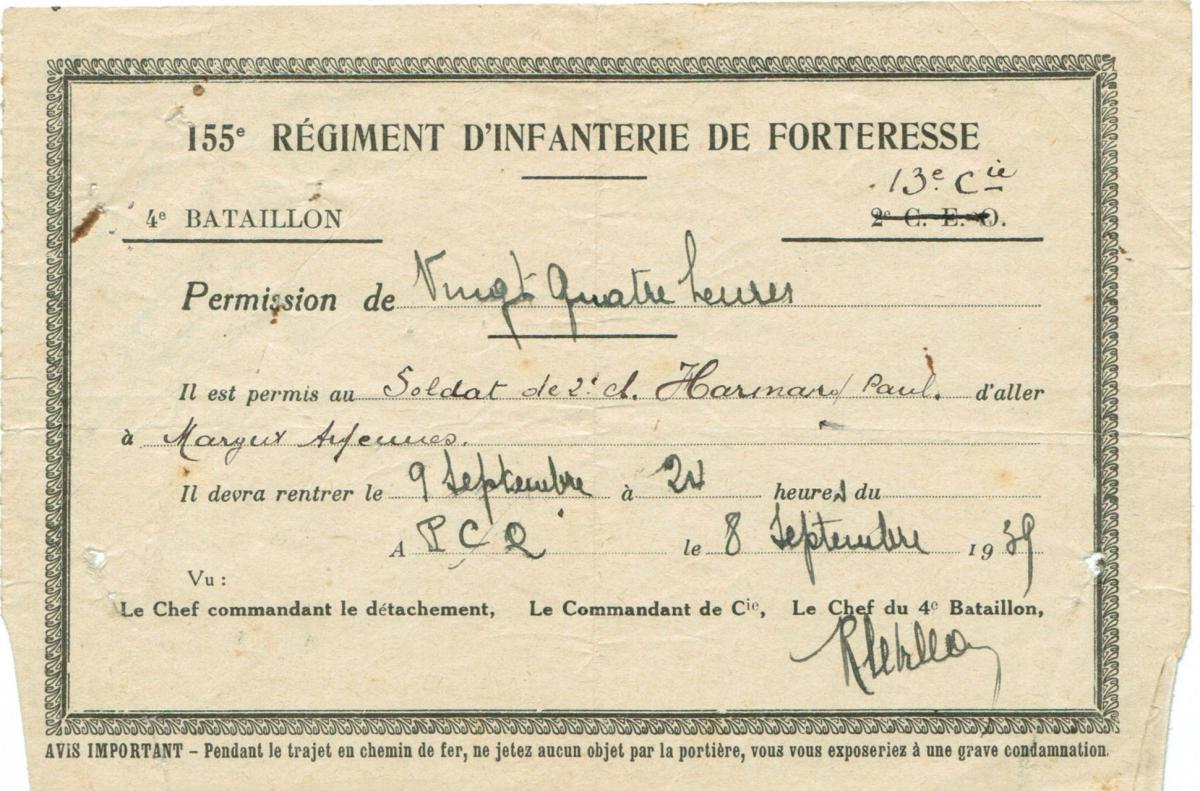 155e RÉGIMENT D'INFANTERIE DE FORTERESSE
13e. Cie
4e BATAILLON 2e C. E. O.
Permission de Vingt Quatre heures
Il est permis au Soldat de 2e cl. Harmand Paul. d'aller
à Margut Ardennes.
Il devra rentrer le 9 Septembre à 24 heures du
A P C Q le 8 Septembre 1939
Vu :
Le Chef commandant le détachement, Le Commandant de Cie, Le Chef du 4e Bataillon,
AVIS IMPORTANT – Pendant le trajet en chemin de fer, ne jetez aucun objet par la portière, vous vous exposeriez à une grave condamnation.